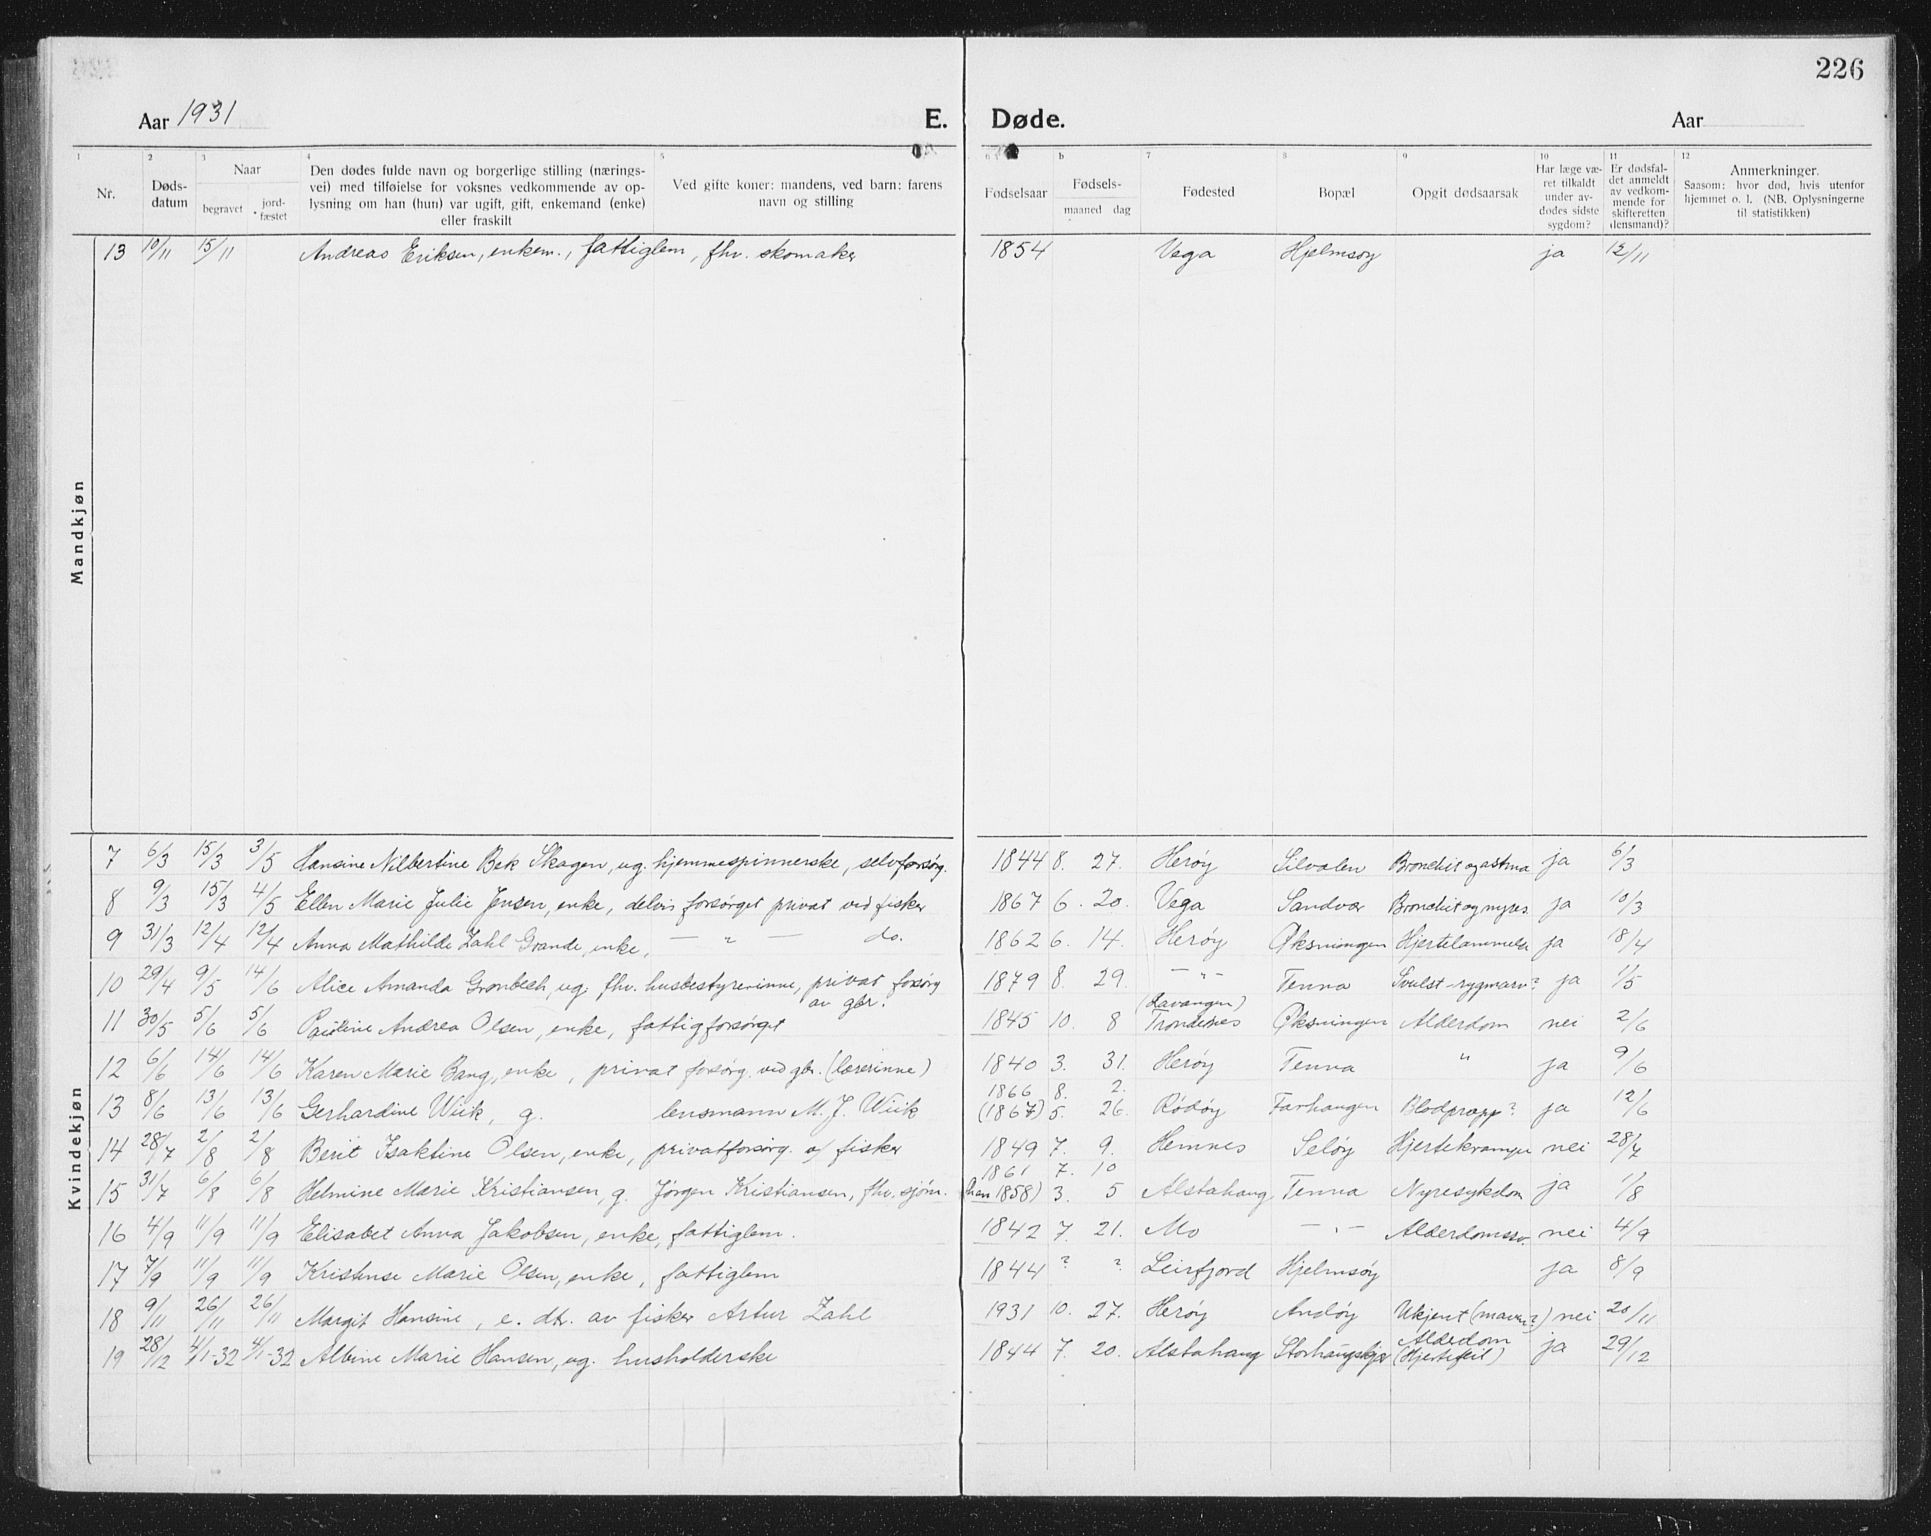 226
Aar 1931
E. Døde.
Aar
1 2 3 4 5 6 b 7 8 9 10 11 12
Nr.
Døds-
datum
Naar
begravet
jord-
fæstet
Den dødes fulde navn og borgerlige stilling (nærings-
vei) med tilføielse for voksnes vedkommende av op-
lysning om han (hun) var ugift, gift, enkemand (enke)
eller fraskilt
Ved gifte koner: mandens, ved barn: farens
navn og stilling
Fødselsaar
Fødsels-
maaned dag
Fødested
Bopæl
Opgit dødsaarsak
Har læge væ-
ret tilkaldt
under av-
dødes sidste
sygdom?
Er dødsfal-
det anmeldt
av vedkom-
mende for
skifteretten
(lensmand)?
Anmerkninger.
Saasom: hvor død, hvis utenfor
hjemmet o. l. (NB. Oplysningerne
til statistikken)
Mandkjøn
13 10/11 15/11 Andreas Eriksen, enkem., fattiglem, fhv. skomaker 1854 Vega Hjelmsøy ja 12/11
Kvindekjøn
7 6/3 15/3 3/5 Hansine Nilbertine Bek Skagen, ug. hjemmespinnerske, selvforsørg. 1844 8. 27. Herøy Silvalen Bronchit og astma ja 6/3
8 9/3 15/3 4/5 Ellen Marie Julie Jensen, enke, delvis forsørget privat ved fisker 1867 6. 20. Vega Sandvær Bronchit og nyres ja 10/3
9 31/3 12/4 12/4 Anna Mathilde Zahl Grande, enke, — " — do. 1862 6. 14. Herøy Øksningen Hjertelammelse ja 18/4
10 29/4 9/5 14/6 Alice Amanda Grønbech, ug. fhv. husbestyrerinne, privat forsørg 1879 8. 29. — " — Tenna Svulst rygmarv? ja 1/5
av gbr.
(Lavangen)
11 30/5 5/6 5/6 Pauline Andrea Olsen, enke, fattigforsørget 1845 10. 8 Trondenes Øksningen Alderdom nei 2/6
12 6/6 14/6 14/6 Karen Marie Bang, enke, privat forsørg. ved gbr. (lærerinne) 1840 3. 31. Herøy Tenna " ja 9/6
1866 8. 2.
13 8/6 13/6 13/6 Gerhardine Wiik, g. lensmann M. J. Wiik (1867) 5. 26. Rødøy Farhaugen Blodpropp? ja 12/6
14 28/7 2/8 2/8 Berit Isaktine Olsen, enke, privatforsørg. a/ fisker 1849 7. 9. Hemnes Seløy Hjertekrampe nei 28/7
1861 7. 10
15 31/7 6/8 6/8 Helmine Marie Kristiansen, g. Jørgen Kristiansen, fhv. sjøm. (han 1858) 3. 5 Alstahaug Tenna Nyresykdom ja 1/8
16 4/9 11/9 11/9 Elisabet Anna Jakobsen, enke, fattiglem. 1842 7. 21. Mo — " — Alderdomssv. nei 4/9
17 7/9 11/9 11/9 Kristense Marie Olsen, enke, fattiglem 1844 ? ? Leirfjord Hjelmsøy ja 8/9
18 9/11 26/11 26/11 Margit Hansine, e. dtr. av fisker Artur Zahl 1931 10. 27. Herøy Andøy Ukjent (mave?) nei 20/11
19 28/12 4/1-32 4/1-32 Albine Marie Hansen, ug. husholderske 1844 7. 20. Alstahaug Storhaugskjær Alderdom ja 29/12
(Hjertefeil)